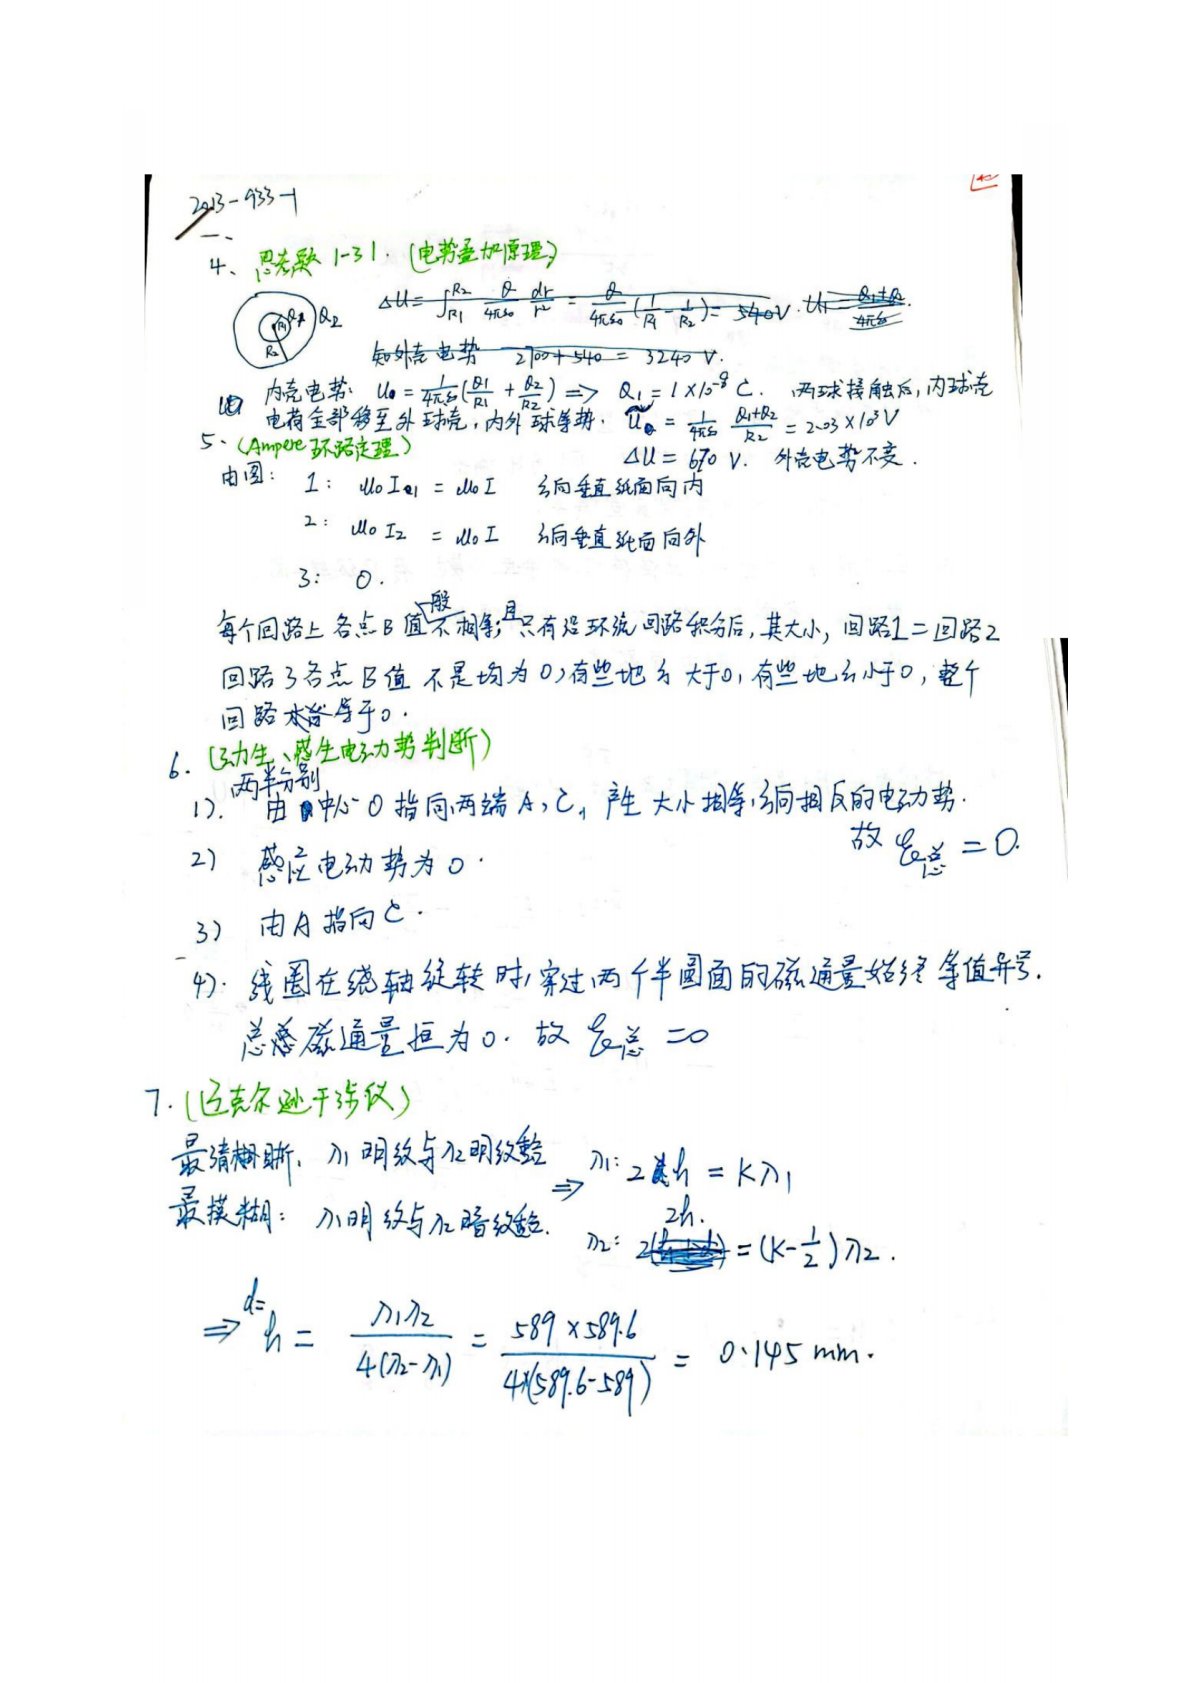 2013-933-1
一、
4、思考题 1-31. (电势叠加原理)
R1 Q1 Q2 R2
ΔU = ∫R1R2 Q/4πε0 dr/r² = Q/4πε0 (1/R1 - 1/R2) = 540V.
知外壳电势 2700+540 = 3240 V.
内壳电势: U = 1/4πε0 (Q1/R1 + Q2/R2) ⇒ Q1 = 1×10⁻⁸ C. 两球接触后,内球壳
电荷全部移至外球壳,内外球等势. U = 1/4πε0 (Q1+Q2)/R2 = 2.03×10³V
ΔU = 670 V. 外壳电势不变.
5、(Ampere环路定理)
由图: 1: μ0I1 = μ0I 方向垂直纸面向内
2: μ0I2 = μ0I 方向垂直纸面向外
3: 0.
每个回路上各点B值一般不相等;且只有沿环绕回路积分后,其大小,回路1=回路2
回路3各点B值不是均为0,有些地方大于0,有些地方小于0,整个
回路 等于0.
6. (动生、感生电动势判断)
1). 两半分别由中心O指向两端A,C,产生大小相等,方向相反的电动势.
故 ℰ总 = 0.
2) 感应电动势为0.
3) 由A指向C.
4). 线圈在绕轴旋转时,穿过两个半圆面的磁通量始终等值异号.
总磁通量恒为0. 故 ℰ总 =0
7. (迈克尔逊干涉仪)
最清晰: λ1明纹与λ2明纹重叠
⇒ λ1: 2h = Kλ1
最模糊: λ1明纹与λ2暗纹重叠.
λ2: 2h. = (K-1/2)λ2.
⇒ d= h = λ1λ2/4(λ2-λ1) = 589×589.6/4×(589.6-589) = 0.145 mm.